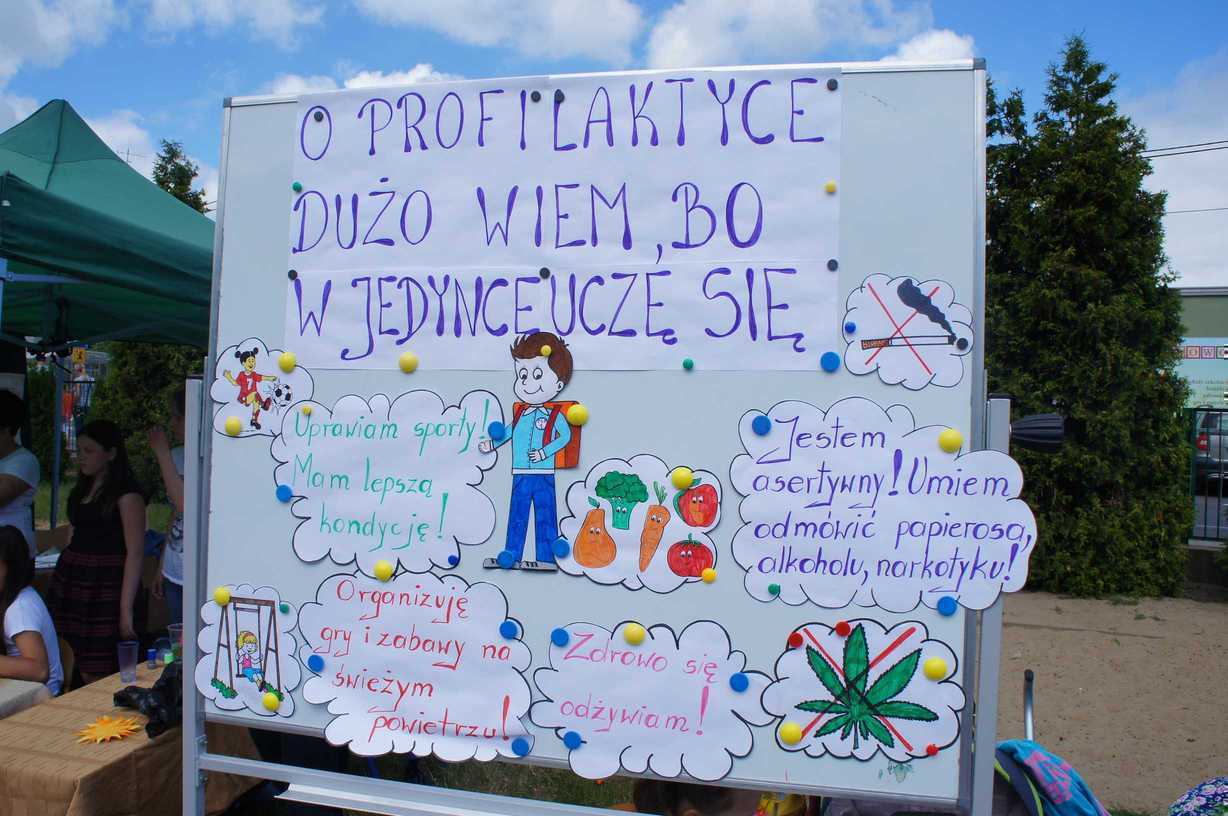 O PROFILAKTYCE
DUŻO WIEM, BO
W JEDYNCE UCZĘ SIĘ
Uprawiam sporty!
Mam lepszą
kondycję!
Jestem
asertywny! Umiem
odmówić papierosa,
alkoholu, narkotyku!
Organizuję
gry i zabawy na
świeżym
powietrzu!
Zdrowo się
odżywiam!